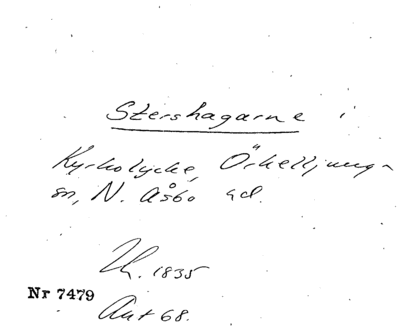 Stershagarne i
Kyrkolycke, Örkelljunga
sn, N. Åsbo hd.
Lh. 1835
Nr 7479
Ant 68.